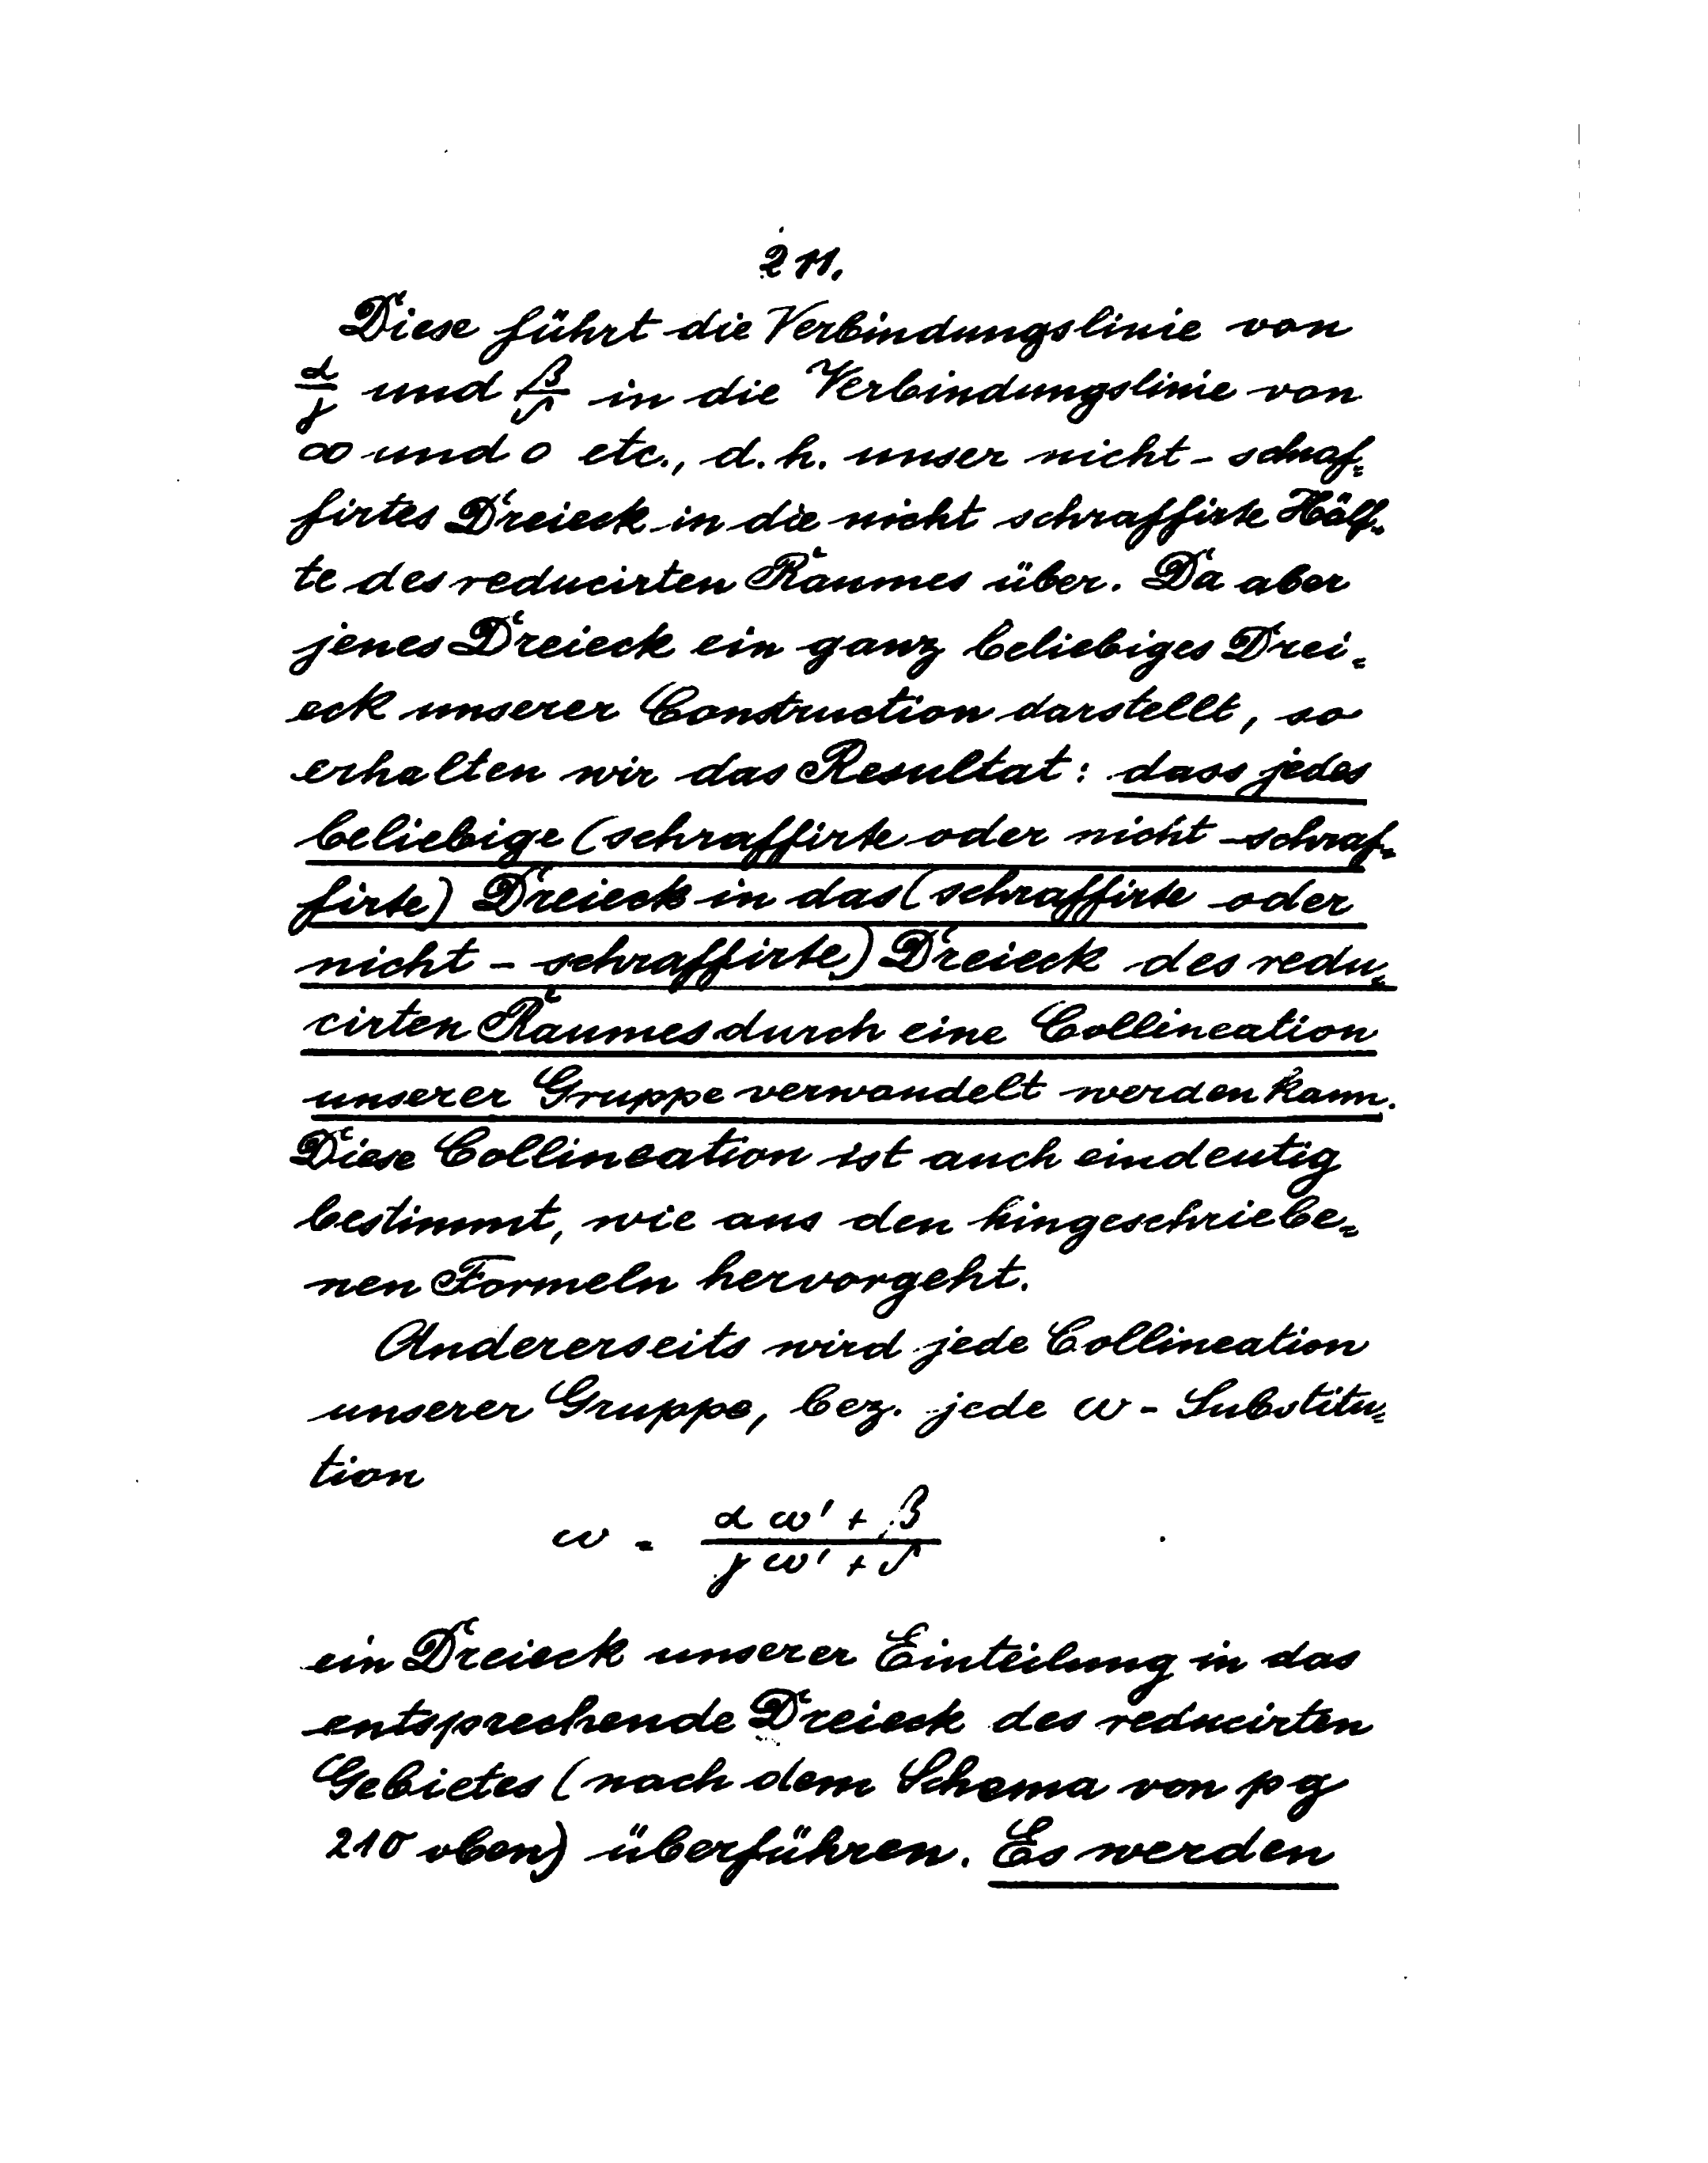 211.
Diese führt die Verbindungslinie von
α/γ und β/δ in die Verbindungslinie von
∞ und 0 etc., d.h. unser nicht-schraf-
firtes Dreieck in die nicht schraffirte Hälf-
te des reducirten Raumes über. Da aber
jenes Dreieck ein ganz beliebiges Drei-
eck unserer Construction darstellt, so
erhalten wir das Resultat: dass jedes
beliebige (schraffirte oder nicht-schraf-
firte) Dreieck in das (schraffirte oder
nicht-schraffirte) Dreieck des redu-
cirten Raumes durch eine Collineation
unserer Gruppe verwandelt werden kann.
Diese Collineation ist auch eindeutig
bestimmt, wie aus den hingeschriebe-
nen Formeln hervorgeht.
Andererseits wird jede Collineation
unserer Gruppe, bez. jede ω-Substitu-
tion
ω = (α ω' + β) / (γ ω' + δ)
ein Dreieck unserer Einteilung in das
entsprechende Dreieck des reducirten
Gebietes (nach dem Schema von pg
210 oben) überführen. Es werden